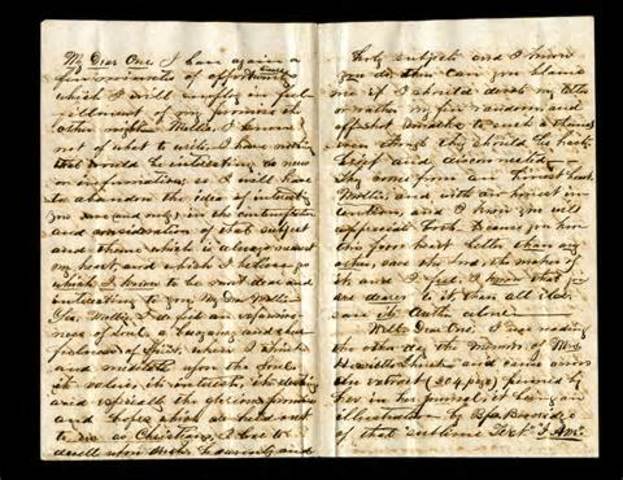 My Dear One, I have again a
few minutes of opportunity
which I will employ in ful-
fillment of my promise the
other night. Mollie, I know
not of what to write. I have nothing
that would be interesting as news
or information; so I will have
to abandon the idea of interesting
you save (and only) in the contemplation
and consideration of that subject
and theme which is always nearest
my heart, and which I believe, yes
which I know to be most dear and
interesting to you, My Dear Mollie.
Yes, Mollie, I do feel an expansive-
ness of soul, a buoyancy and
of Spirit, when I think
and meditate upon the Soul
its values, its interests, its destiny
and especially the glorious promises
and hopes which are held out
to us as Christians, I love to
dwell upon such heavenly and
holy subjects and I know
you do, then can you blame
me if I should devote my letter
or rather my few random and
remarks to such a theme
even though they should be
brief and disconnected,
They come from an honest heart,
Mollie, and with an honest in-
tention, and I know you will
appreciate both. Because you know
this poor heart better than any
other, save the One, the maker of
it and I feel, I know that you
are dearer to it, than all else
save its Author alone.
Well Dear One. I was reading
the other day the Memoir of Mrs
Henrietta Shuck and came across
an extract (204 page) penned by
her in her journal, it being an
illustration by Bp. Beveridge
of that "sublime Text" "I Am."